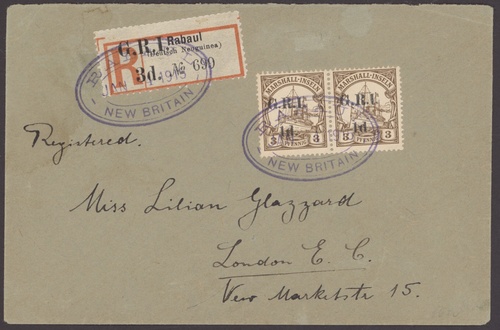 G.R.I. Rabaul
(Deutsch Neuguinea)
R 3d. № 690
1915
NEW BRITAIN
MARSHALL-INSELN MARSHALL-INSELN
G.R.I. G.R.I.
1d. 1d.
3 PFENNIG 3 3 PFENNIG 3
NEW BRITAIN
Registered.
Miss Lilian Glazzard
London E. C.
New Marketstr 15.